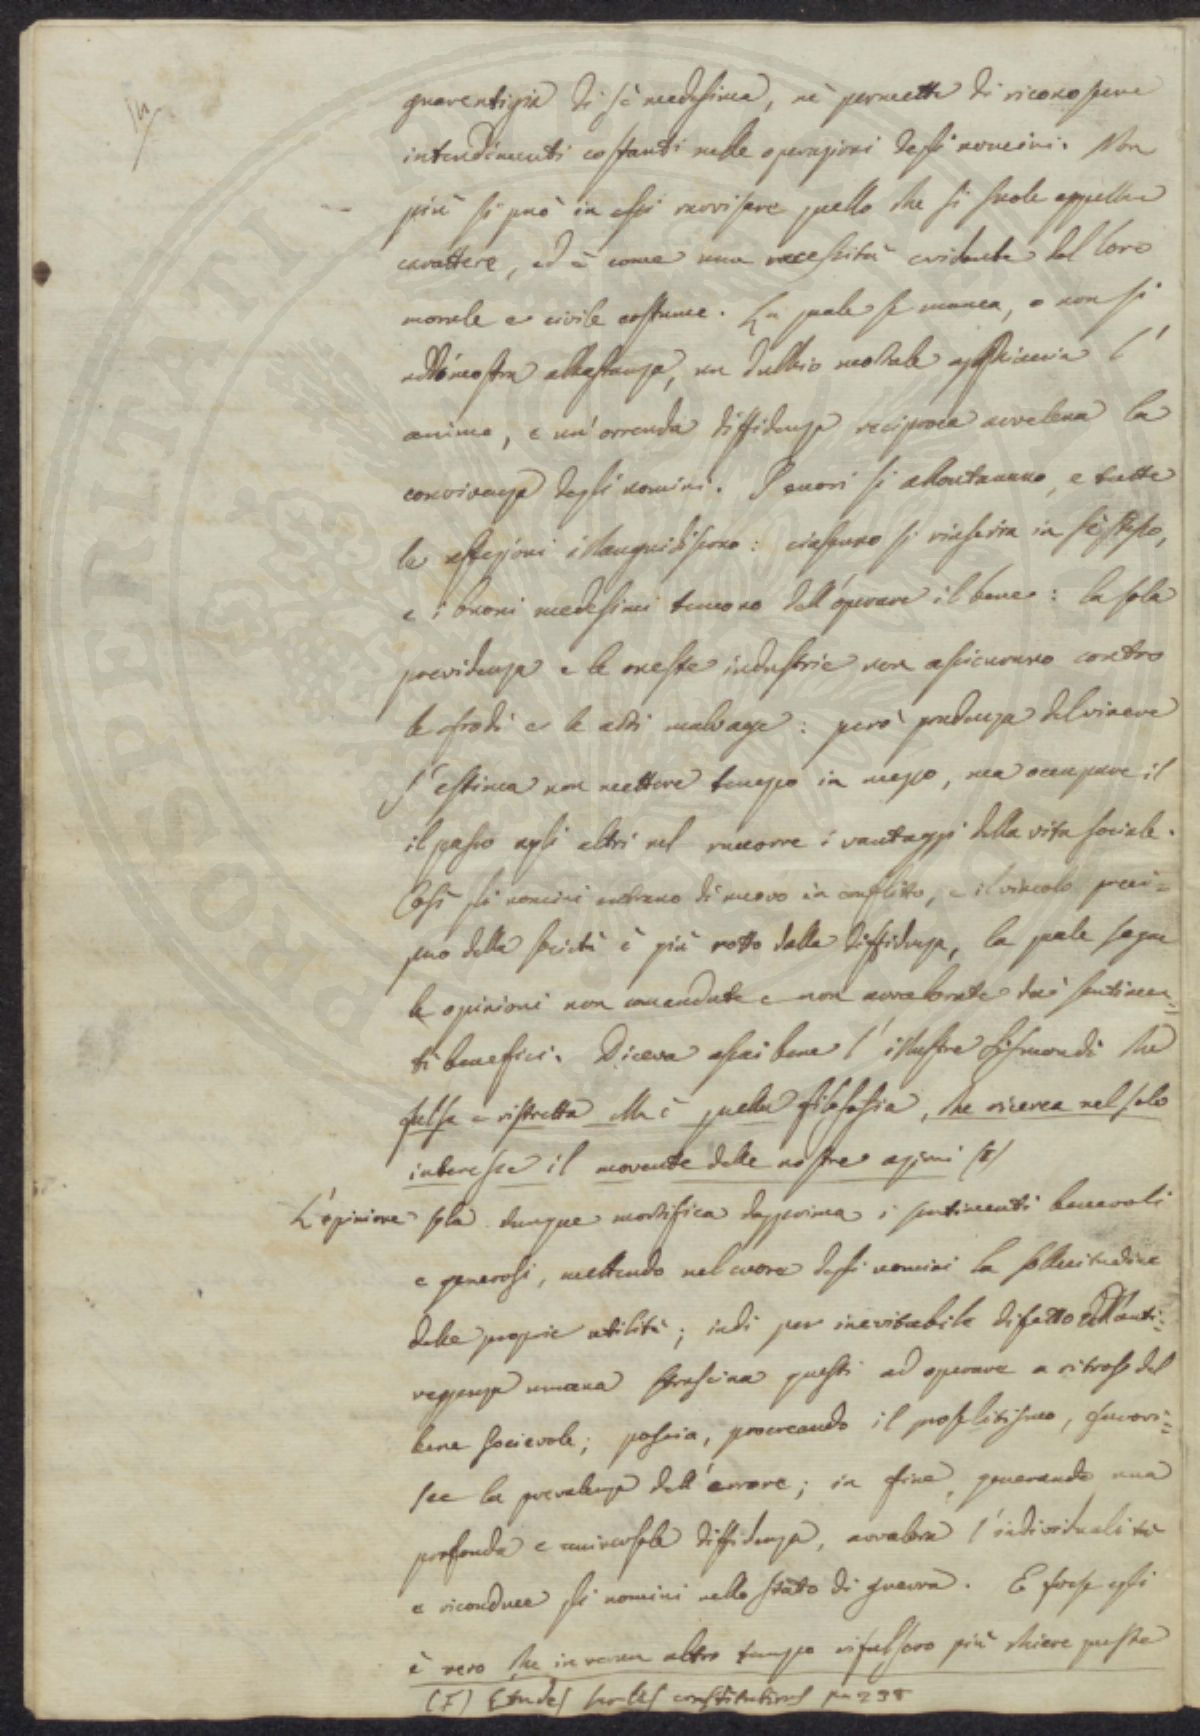 guarentigia di sè medesima, nè permette di riconoscere
intendimenti costanti nelle operazioni degli uomini. Non
più si può in essi ravvisare quello che si suole appellare
carattere, ed è come una necessità evidente del loro
morale e civile costume. La quale se manca, o non si
addimostra abbastanza, un dubbio mortale agghiaccia l'
anima, e un'orrenda diffidenza reciproca avvelena la
convivenza degli uomini. I cuori si allontanano, e tutte
le affezioni illanguidiscono: ciascuno si rinserra in sè stesso,
e i buoni medesimi temono dell'operare il bene: la sola
previdenza e le oneste industrie non assicurano contro
le frodi e le arti malvage: però prudenza del vivere
s'estima non mettere tempo in mezzo, ma occupare il
il passo agli altri nel raccorre i vantaggi della vita sociale.
Così gli uomini entrano di nuovo in conflitto, e il vincolo preci=
puo della società è già rotto dalla diffidenza, la quale segue
le opinioni non emendate e non avvalorate dai sentimen=
ti benefici. Diceva assai bene l'illustre Sismondi che
falsa e ristretta ella è quella filosofia, che ricerca nel solo
interesse il movente delle nostre azioni (I)
L'opinione sola dunque mortifica dapprima i sentimenti benevoli
e generosi, mettendo nel cuore degli uomini la sollecitudine
delle proprie utilità; indi per inevitabile difetto dell'anti=
veggenza umana strascina questi ad operare a ritroso del
bene socievole; poscia, procreando il proselitismo, favori=
sce la prevalenza dell'errore; in fine, generando una
profonda e universale diffidenza, avvalora l'individualità
e riconduce gli uomini nello stato di guerra. E forse egli
è vero che in verun altro tempo rifulsero più chiare queste
(I) Etudes sur les constitutions pa 295